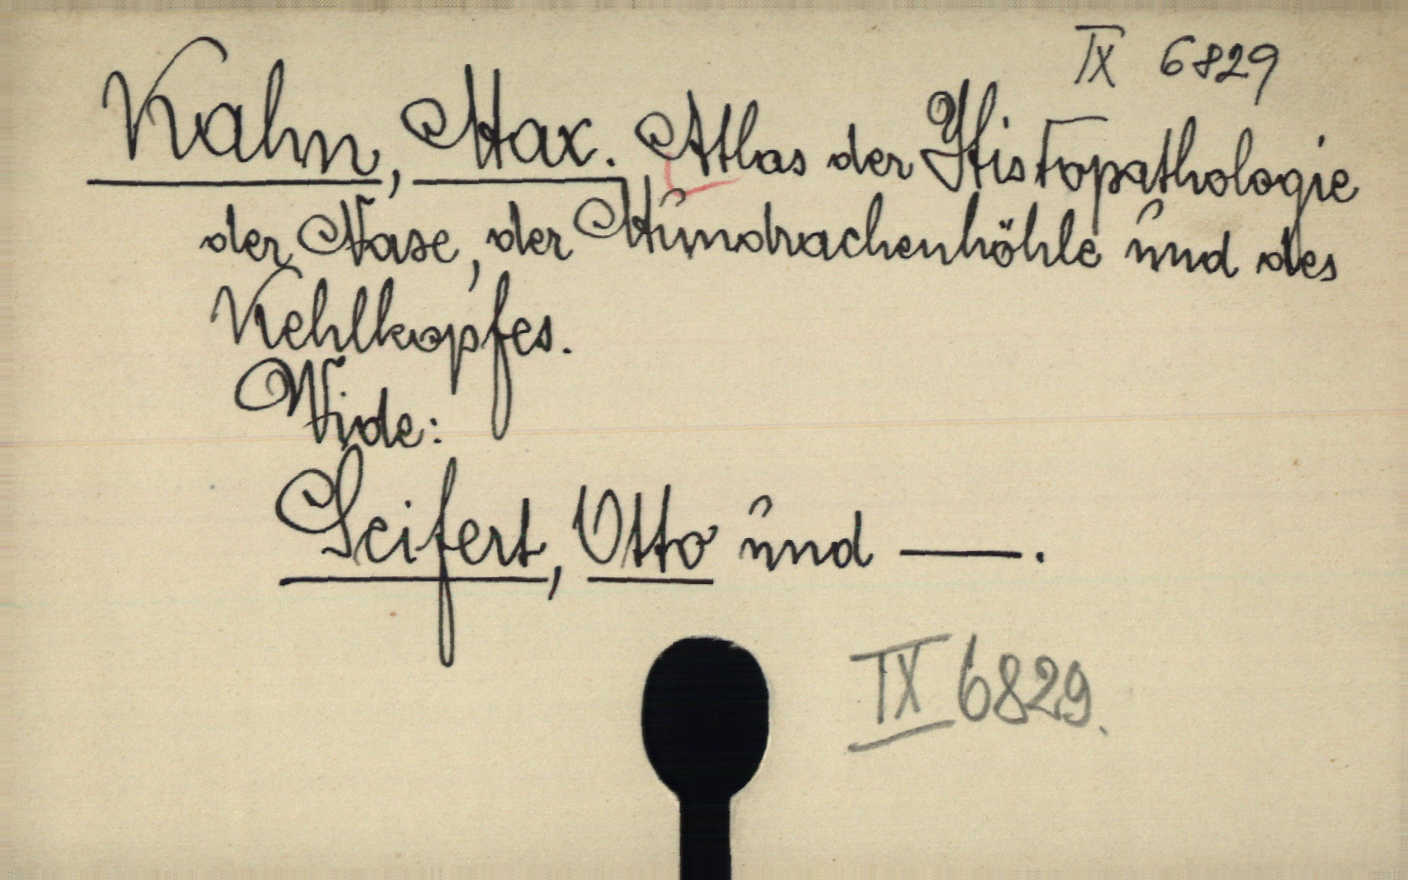 IX 6829
Kahn, Max. Atlas der Histopathologie
der Nase, der Mundrachenhöhle und des
Kehlkopfes.
Vide:
Seifert, Otto und ——.
IX 6829.